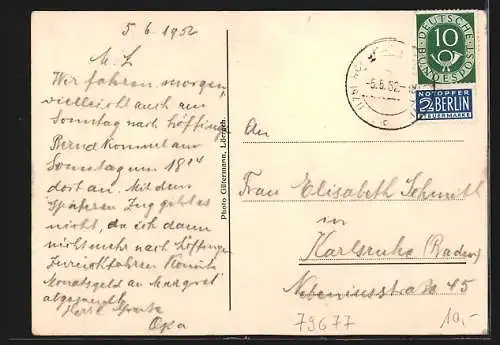 5 6 1952
M. L
Wir fahren morgen,
vielleicht auch am
Sonntag nach Löffing.
Bernd kommt am
Sonntag um 18 04
dort an. Mit dem
späteren Zug geht es
nicht, da ich dann
nicht mehr nach Löffingen
zurückfahren könnte
Monatsgeld an Margret
abgesandt
Herzl
Opa
Photo Gütermann, Lörrach.
-5.6.52.-
DEUTSCHE
BUNDESPOST
10
NOTOPFER
2 BERLIN
STEUERMARKE
An
Frau Elisabeth Schmith
in
Karlsruhe (Baden)
Nebeniusstraße 45
79677
10,-